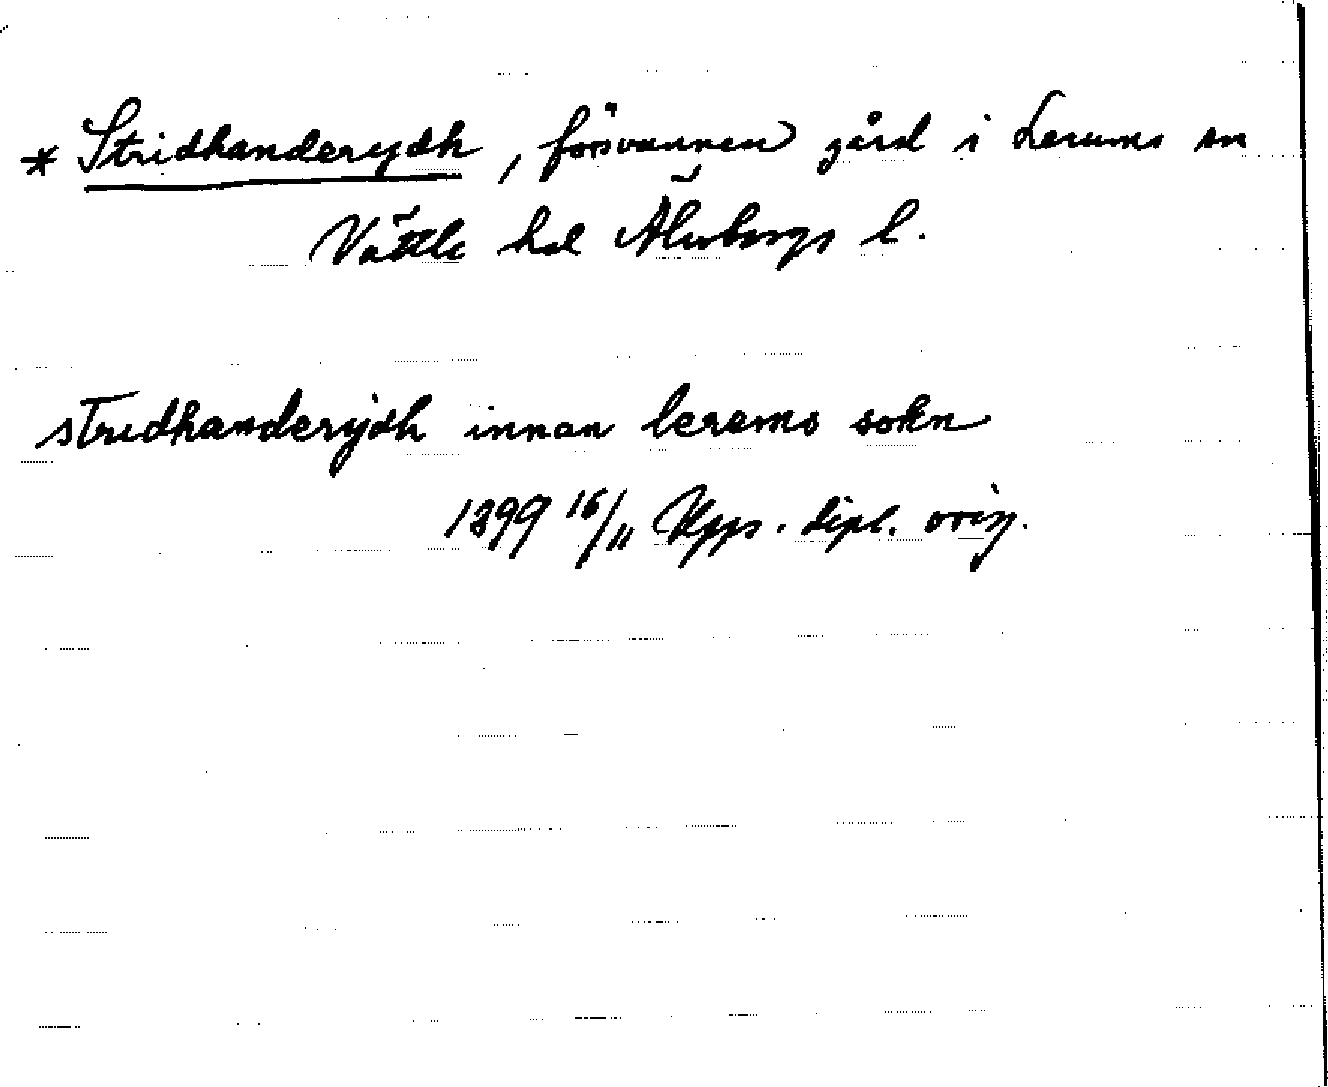 * Stridhanderydh, försvunnen gård i Lerums sn
Vättle hd Älvsborgs l.
stridhanderydh innan lerems sokn
1399 16/11 Upps. dipl. orig.